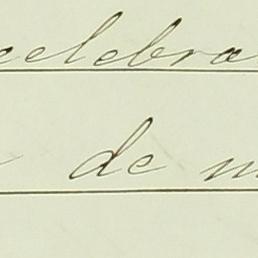 celebra
de m